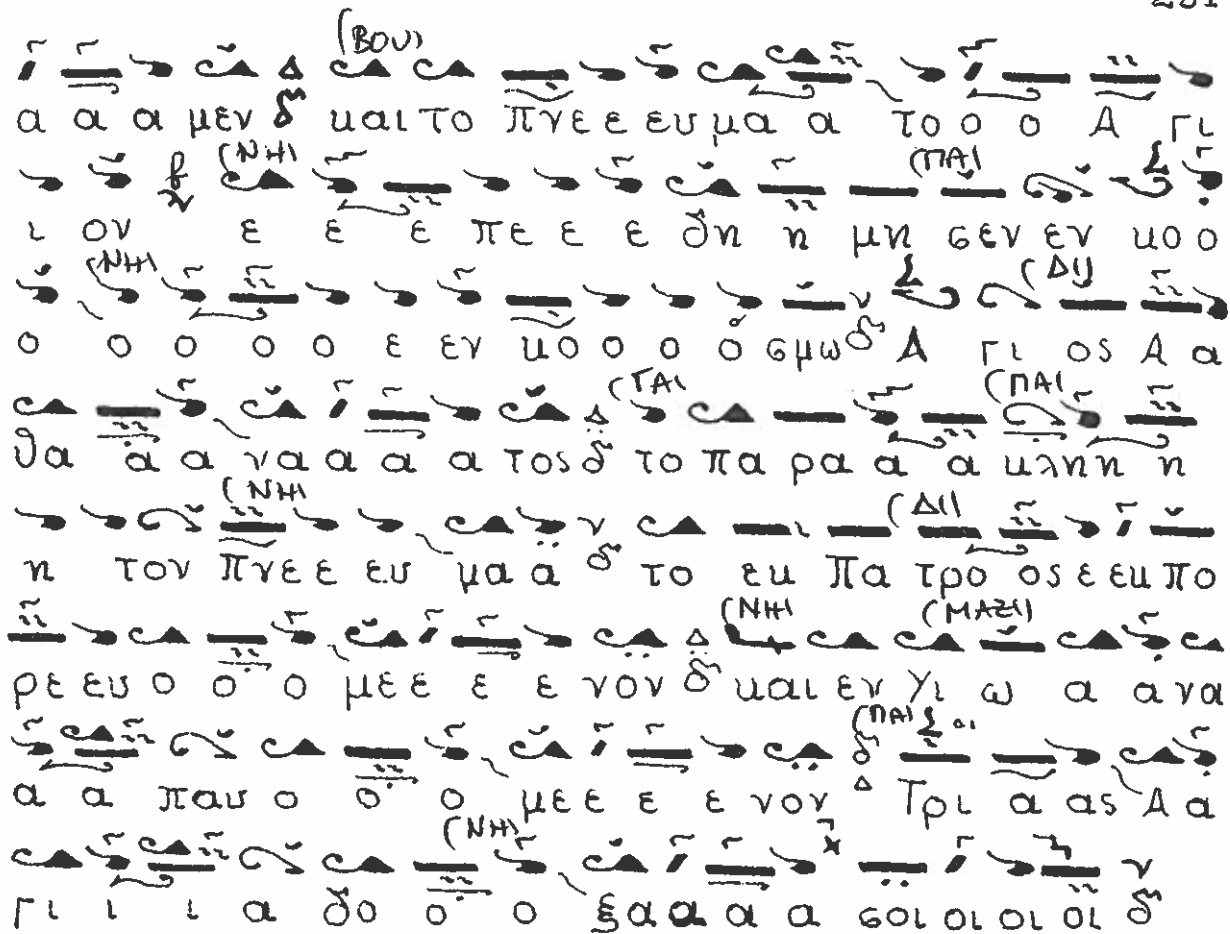 (ΒΟΥ)
α α α μεν και το πνε ε ευ μα α το ο ο Α γι
(ΝΗ) (ΠΑ)
ι ον ε ε ε πε ε ε δη η μη σεν εν κο ο
(ΝΗ) (ΔΙ)
ο ο ο ο ο ε εν κο ο ο ο σμω Α γι ος Α α
(ΓΑ) (ΠΑ)
θα α α να α α α α τος το πα ρα α α κλη η η
(ΝΗ) (ΔΙ)
η τον πνε ε ευ μα α το εκ Πα τρο ος ε εκ πο
(ΝΗ) (ΜΑΖΙ)
ρε ευ ο ο ο με ε ε ε νον και εν γι ω α α να
(ΠΑ)
α α παυ ο ο ο με ε ε ε νον Τρι α ας Α α
(ΝΗ)
γι ι ι α δο ο ο ξα α α α α σοι οι οι οι